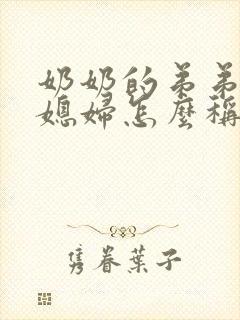 奶奶的弟弟
媳婦怎麼稱
隽眷葉子